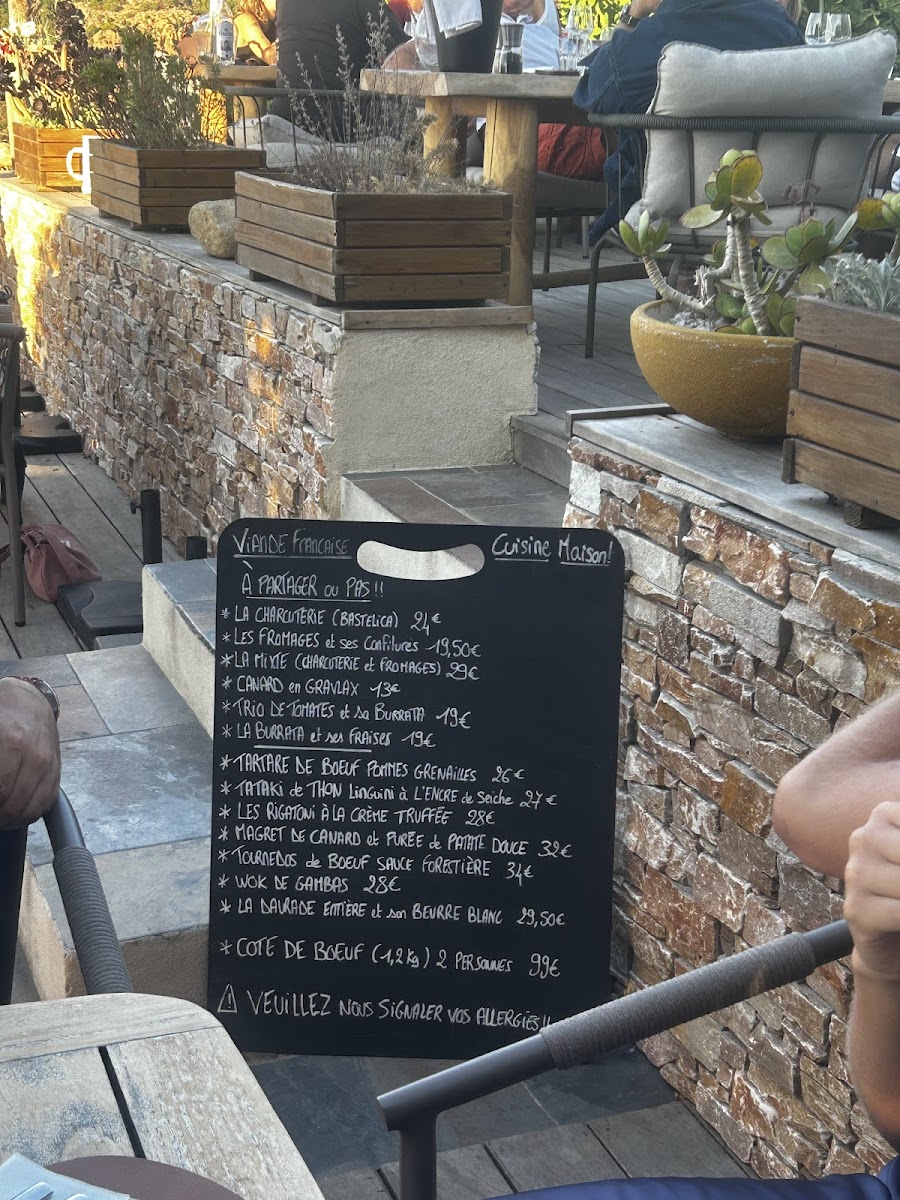 VIANDE FRANCAISE
CUISINE MAISON!
À PARTAGER OU PAS!!
* LA CHARCUTERIE (BASTELICA) 24€
* LES FROMAGES et ses Confitures 19,50€
* LA MIXTE (CHARCUTERIE et FROMAGES) 29€
* CANARD en GRAVLAX 13€
* TRIO DE TOMATES et sa BURRATA 19€
* LA BURRATA et ses FRAISES 19€
* TARTARE DE BOEUF POMMES GRENAILLES 26€
* TATAKI de THON LINGUINI à L'ENCRE de Seiche 27€
* LES RIGATONI À LA CRÈME TRUFFÉE 28€
* MAGRET DE CANARD et PURÉE de PATATE DOUCE 32€
* TOURNEDOS de BOEUF SAUCE FORESTIÈRE 34€
* WOK DE GAMBAS 28€
* LA DAURADE ENTIÈRE et son BEURRE BLANC 29,50€
* COTE DE BOEUF (1,2Kg) 2 PERSONNES 99€
⚠ VEUILLEZ NOUS SIGNALER VOS ALLERGIES!!